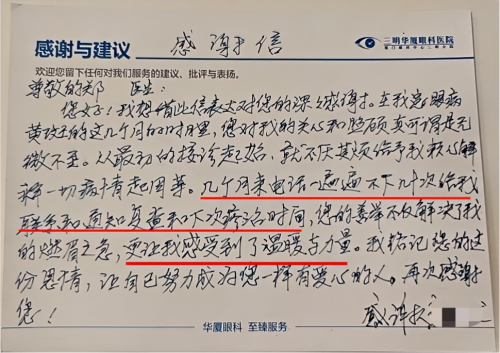 感谢与建议
感谢信
三明华厦眼科医院
厦门眼科中心三明分院
欢迎您留下任何对我们服务的建议、批评与表扬。
尊敬的邓 医生:
您好!我想借此信表达对您的深深感谢。在我患眼病
黄斑的这几个月的时日里,您对我的关心和照顾真可谓是无
微不至。从最初的接诊起始,就不厌其烦给予我耐心解
释一切病情起因等。几个月来电话一遍遍不下几十次给我
联系和通知复查和下次疹治时间,您的善举不仅解决了我
的燃眉之急,更让我感受到了温暖与力量。我铭记您的这
份恩情,让自己努力成为您一样有爱心的人。再次感谢
您!
感谢
华厦眼科 至臻服务